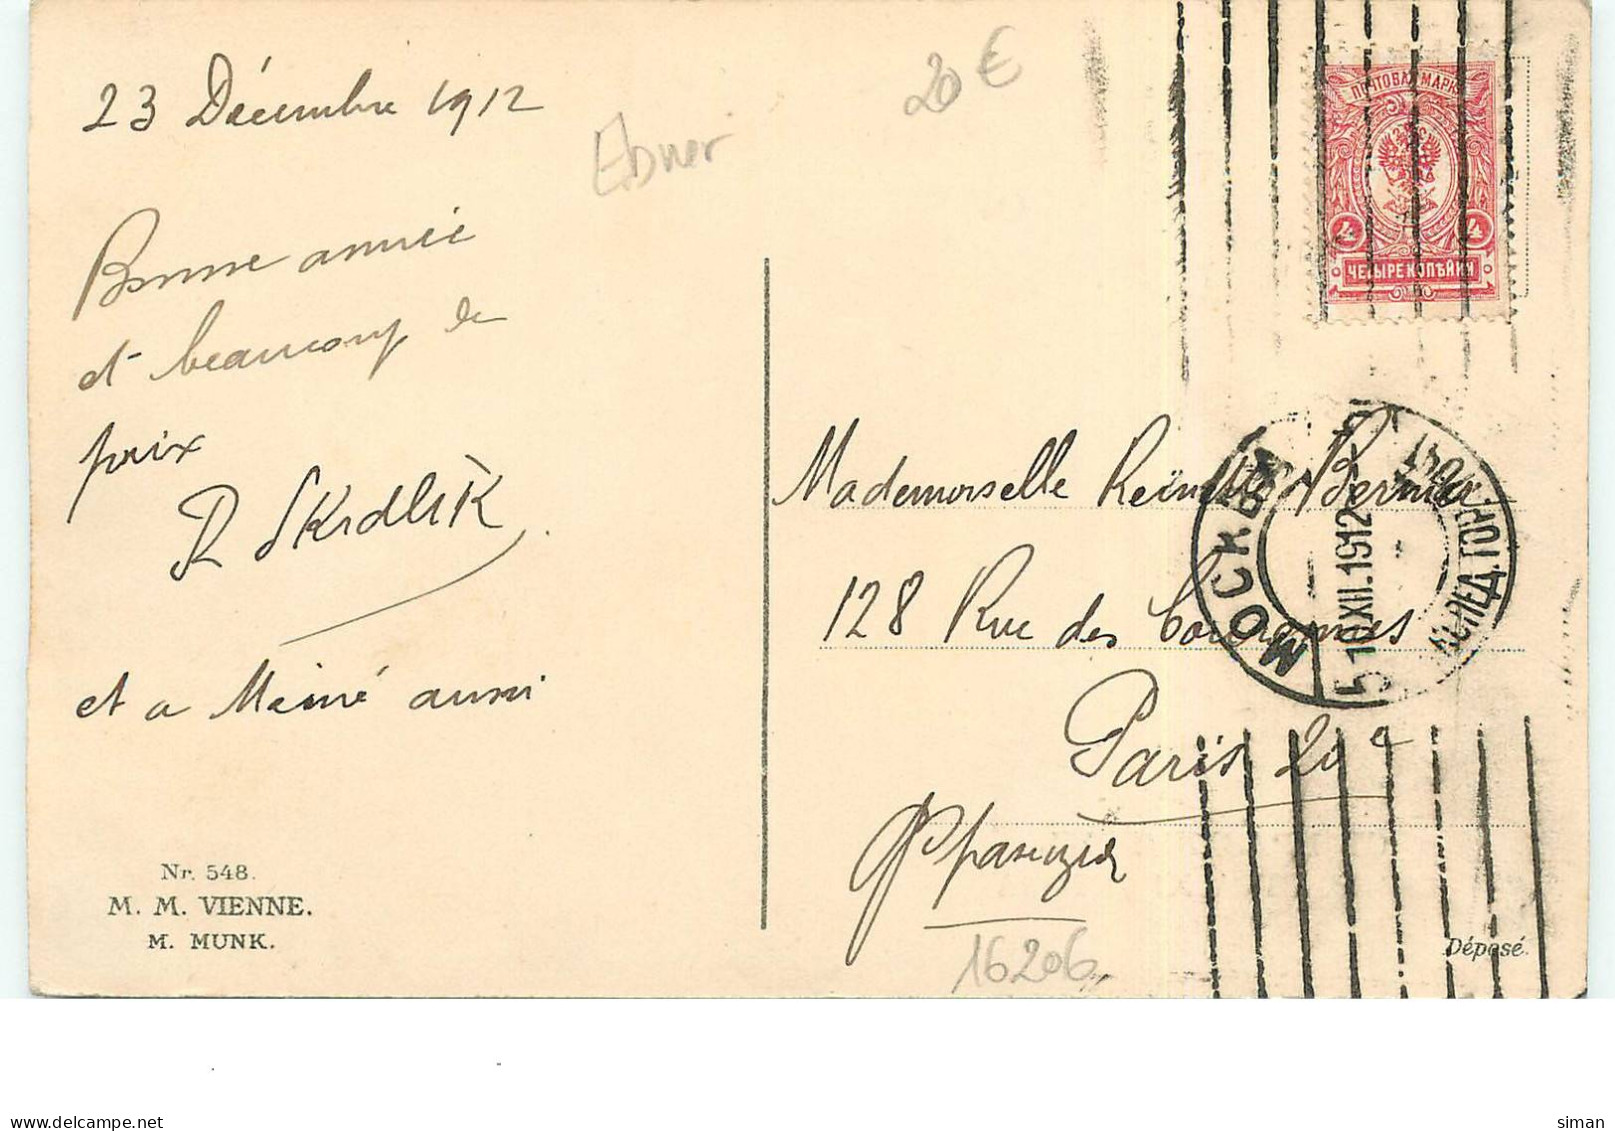 23 Décembre 1912
Ebner
20 €
ПОЧТОВАЯ МАРКА
4 4
ЧЕТЫРЕ КОПѢЙКИ
Bonne année
et beaucoup de
paix
R Skrdlik
et a Mémé aussi
Mademoiselle Reinette Bernier
128 Rue des
Paris 20e
Франция
МОСКВА
5 10.XII.1912
ГОР. ПОЧТ
16206
Nr. 548.
M. M. VIENNE.
M. MUNK.
Déposé.
delcampe.net
siman